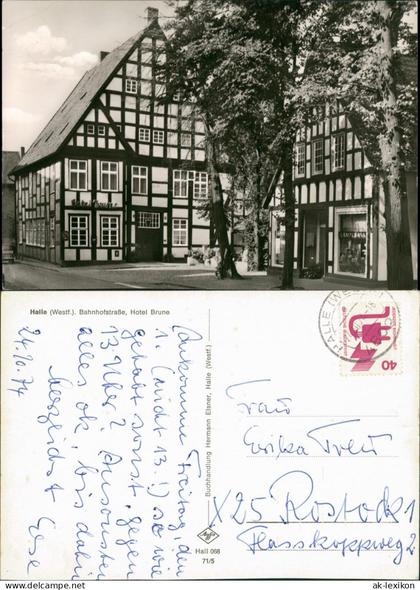 Halle (Westf.). Bahnhofstraße, Hotel Brune
24.10.74
Ankomme Freitag, den
1. (nicht 13.!) so wie
gehabt sonst, gegen
13 Uhr? Ansonsten
alles ok, bis dahin
Herzlichst
Buchhandlung Hermann Elsner, Halle (Westf.)
Hall 068
71/5
HALLE (WES
40
Frau
Erika Treu
X25 Rostock 1
Flasskoppweg 2
www.ak-ansichtskarten.de
ak-lexikon